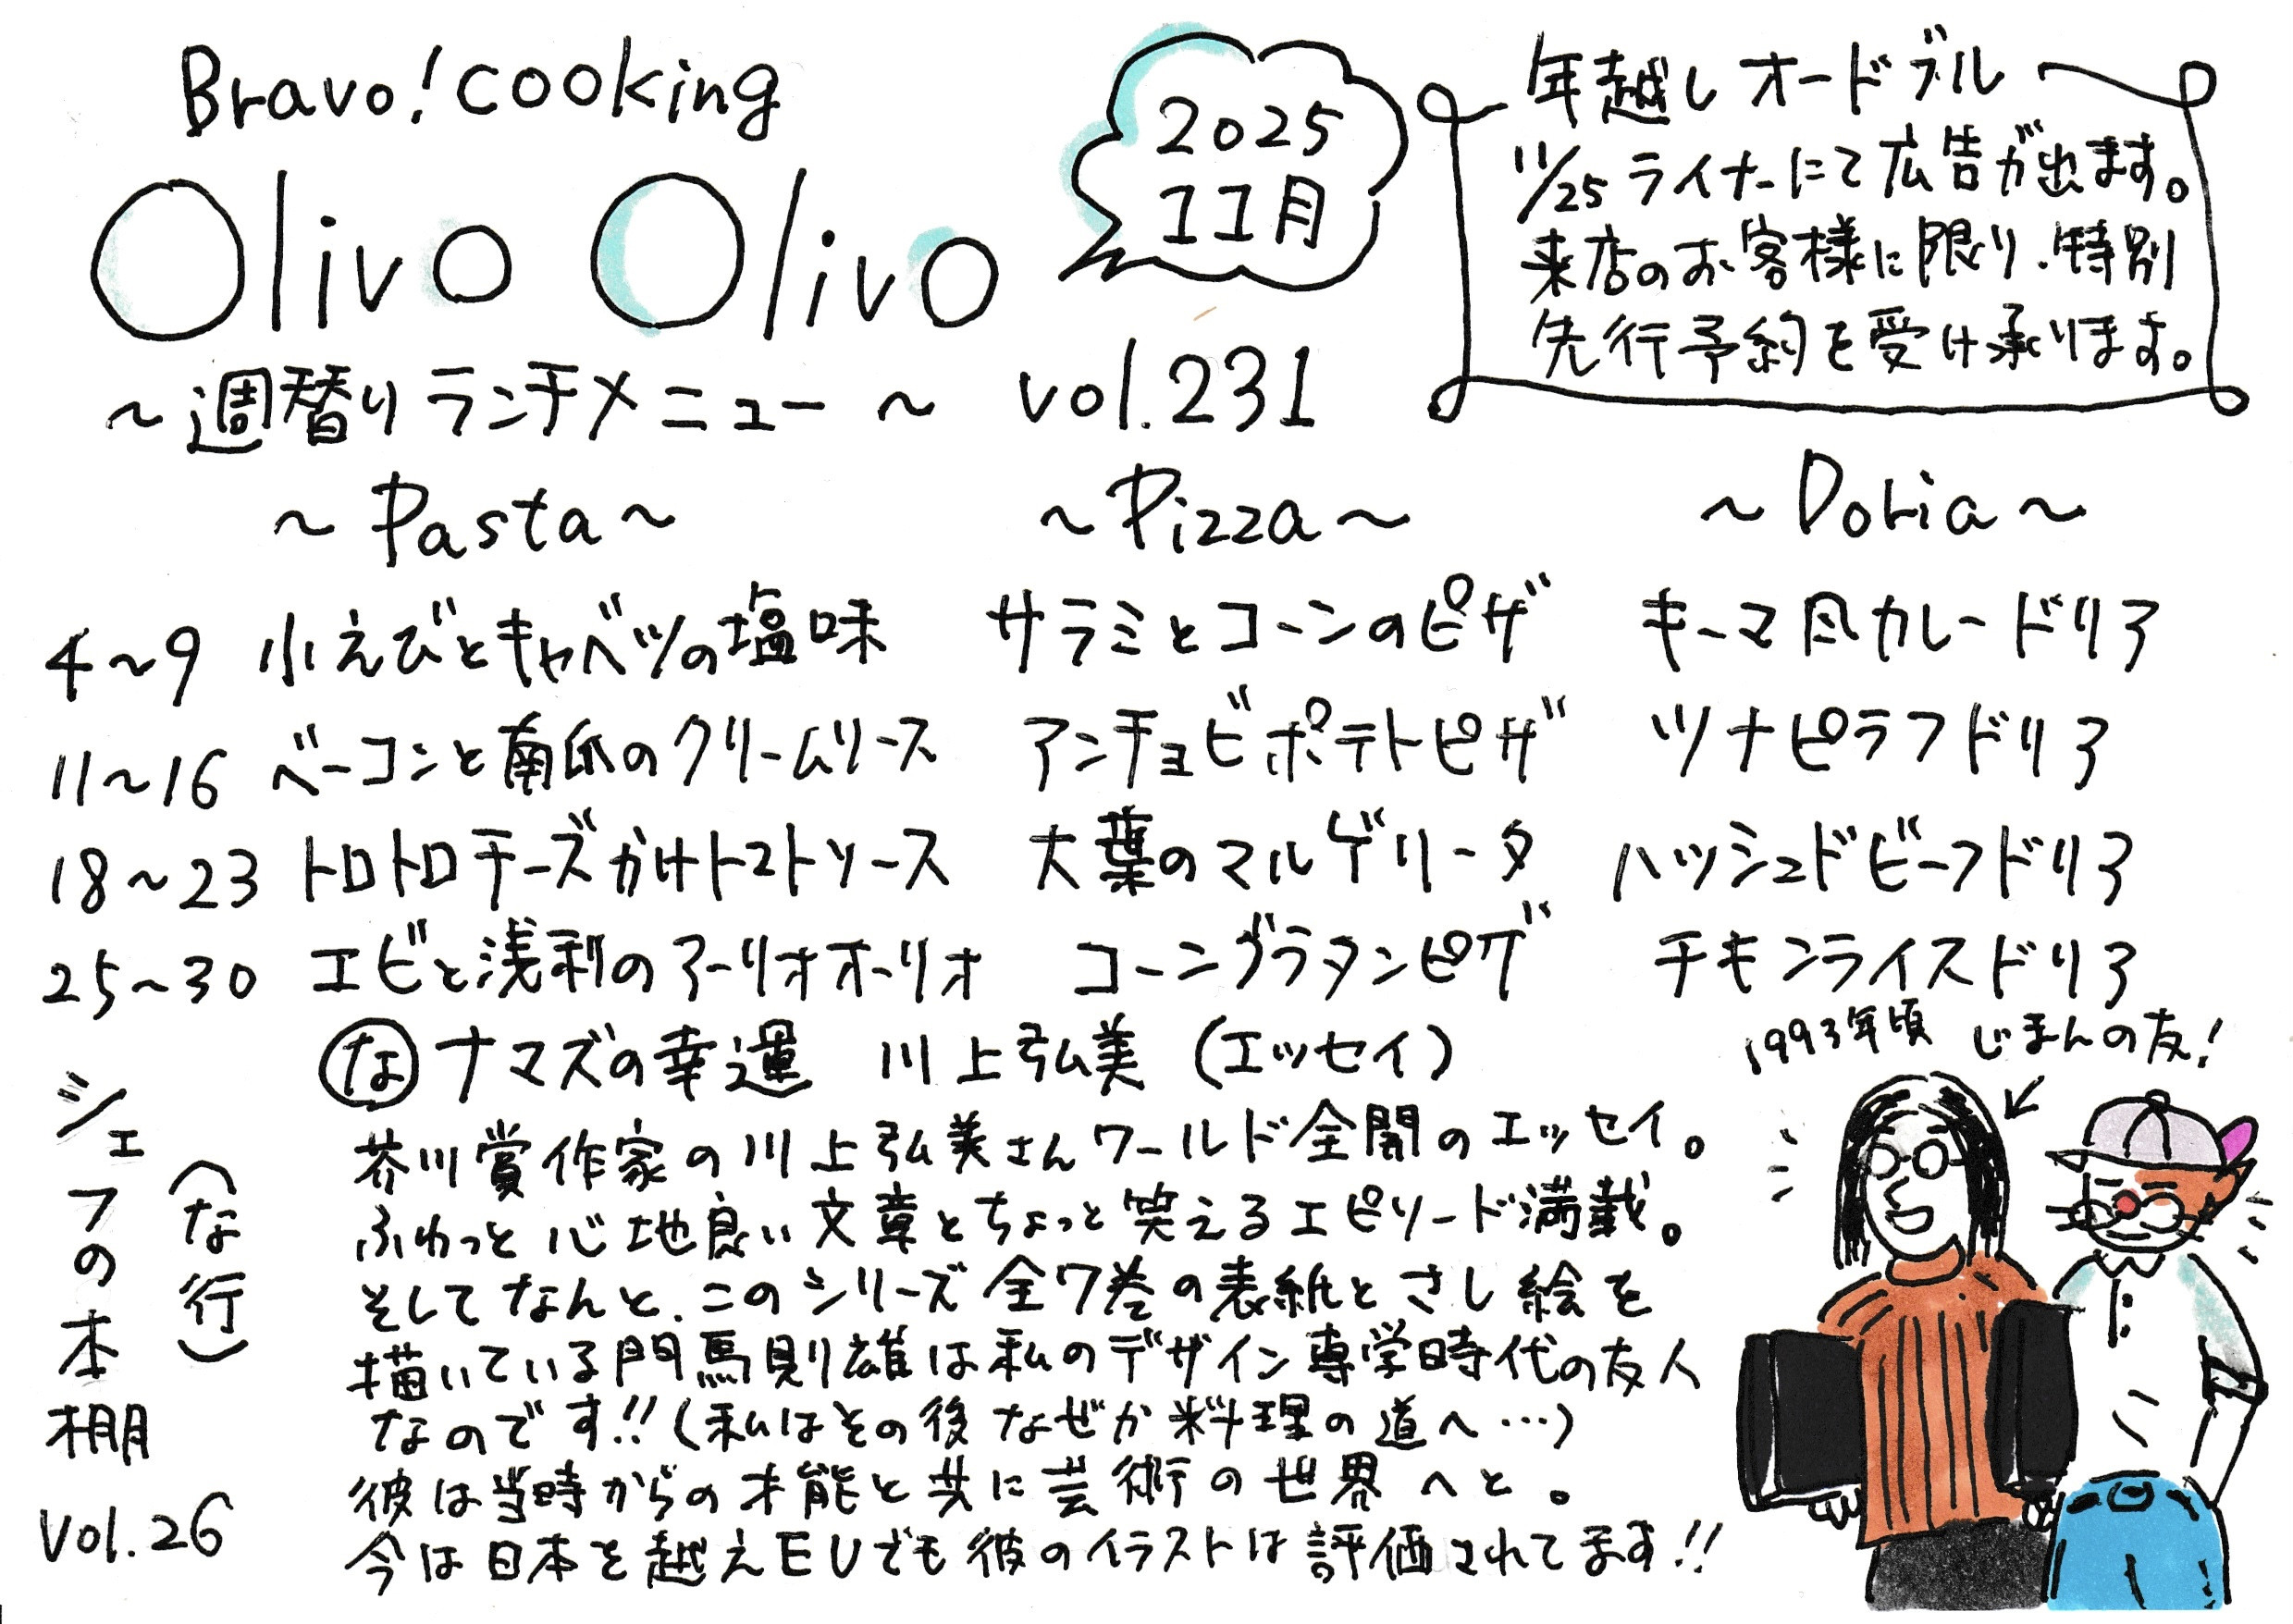 Bravo! cooking
Olivo Olivo
2025
11月
年越しオードブル
11/25 ライナーにて広告が出ます。
来店のお客様に限り、特別
先行予約を受け承ります。
～週替りランチメニュー～ vol.231
～Pasta～ ～Pizza～ ～Doria～
4～9 小えびとキャベツの塩味 サラミとコーンのピザ キーマ風カレードリア
11～16 ベーコンと南瓜のクリームソース アンチョビポテトピザ ツナピラフドリア
18～23 トロトロチーズかけトマトソース 大葉のマルゲリータ ハッシュドビーフドリア
25～30 エビと浅利のアーリオオーリオ コーングラタンピザ チキンライスドリア
シェフの本棚
(な行)
vol.26
な ナマズの幸運 川上弘美 (エッセイ)
芥川賞作家の川上弘美さんワールド全開のエッセイ。
ふわっと心地良い文章とちょっと笑えるエピソード満載。
そしてなんと、このシリーズ全7巻の表紙とさし絵を
描いている門馬則雄は私のデザイン専学時代の友人
なのです!!(私はその後なぜか料理の道へ…)
彼は当時からの才能と共に芸術の世界へと。
今は日本を越えEUでも彼のイラストは評価されてます!!
1993年頃 じまんの友!